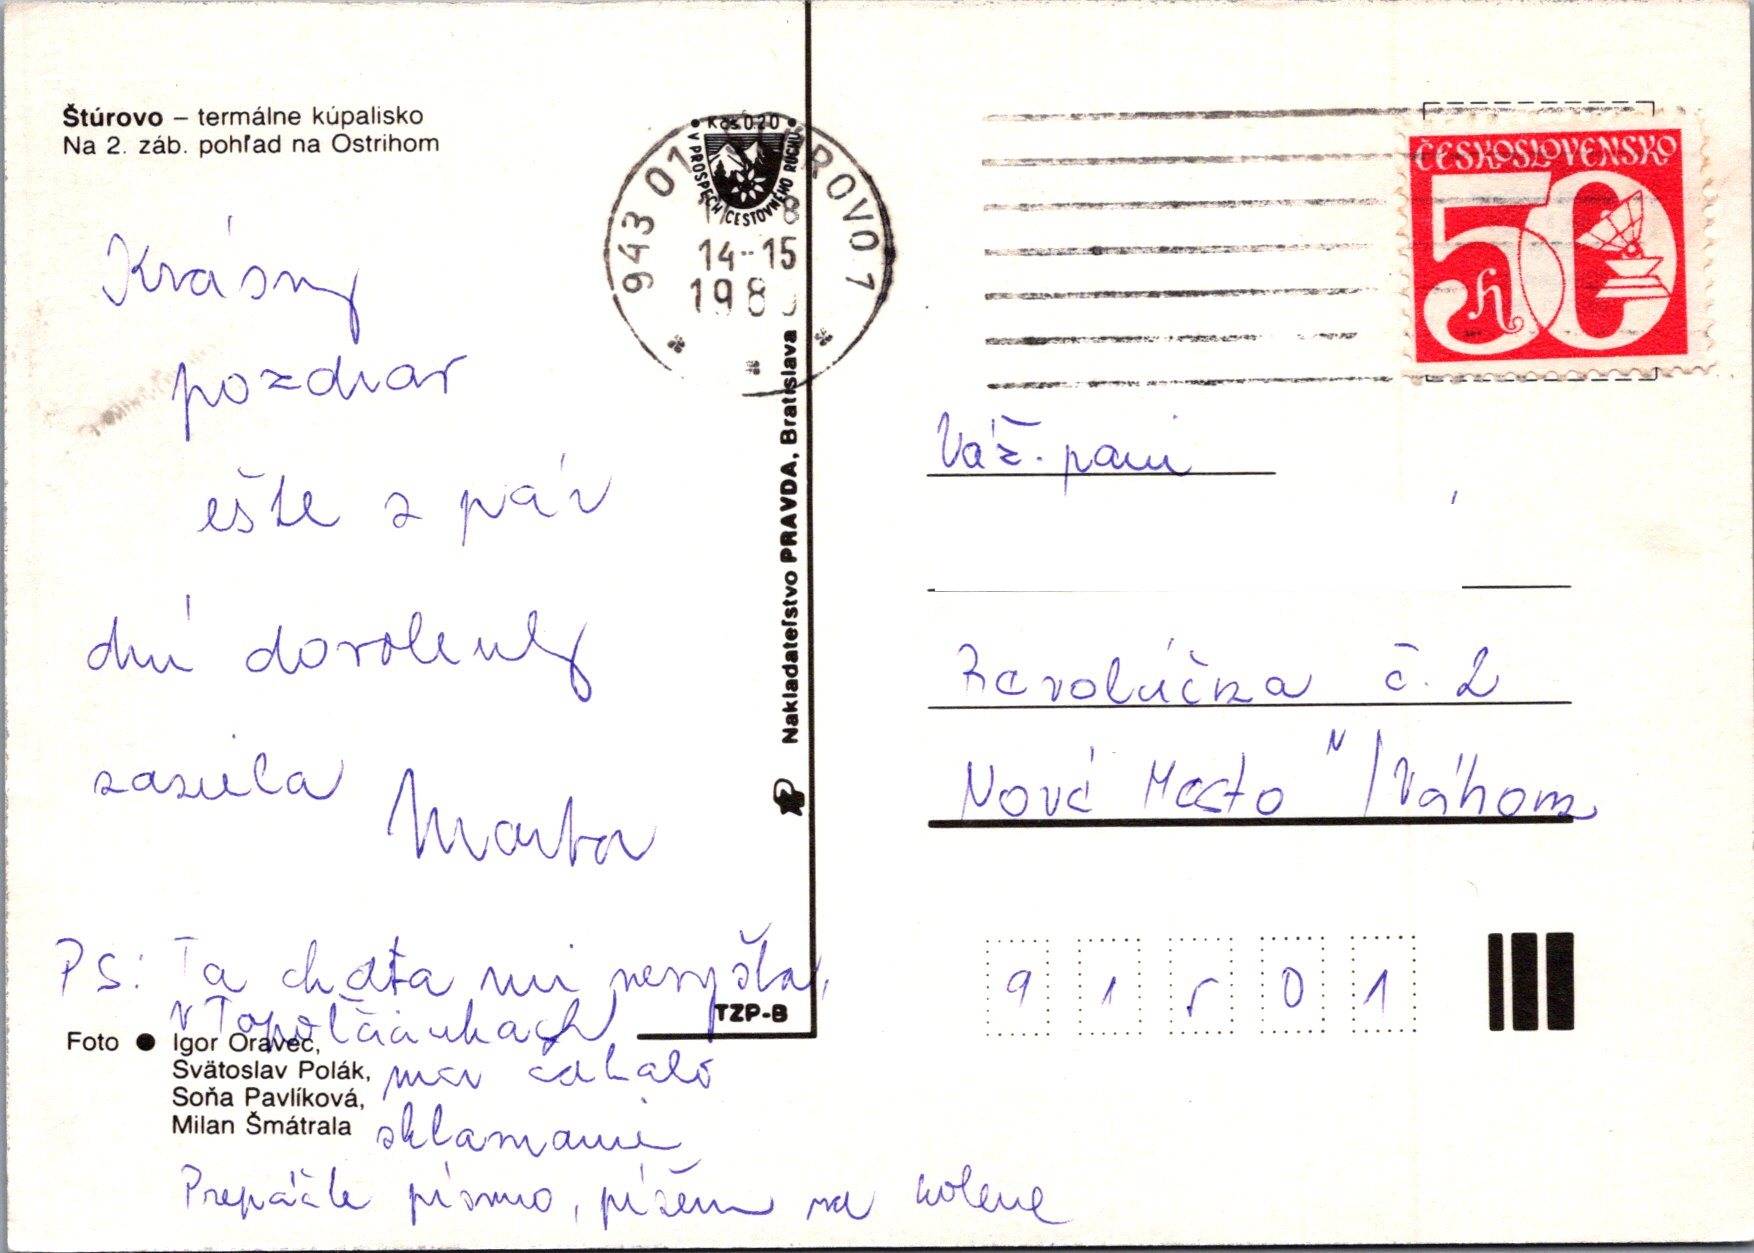 Štúrovo – termálne kúpalisko
Na 2. záb. pohľad na Ostrihom
Krásny
pozdrav
ešte z pár
dní dovolenky
zasiela Marta
PS: Ta chata mi nevyšla,
v Topoľčiankach
ma čakalo
sklamanie
Prepáčte písmo, píšem na kolene
Foto ● Igor Oravec,
Svätoslav Polák,
Soňa Pavlíková,
Milan Šmátrala
TZP-B
Nakladateľstvo PRAVDA, Bratislava
Kčs 0,20
V PROSPECH CESTOVNÉHO RUCHU
943 01 ROVO 1
8
14-15
198
ČESKOSLOVENSKO
50 h
Váž. pani
Revolúčna č. 2
Nové Mesto n/Váhom
915 01